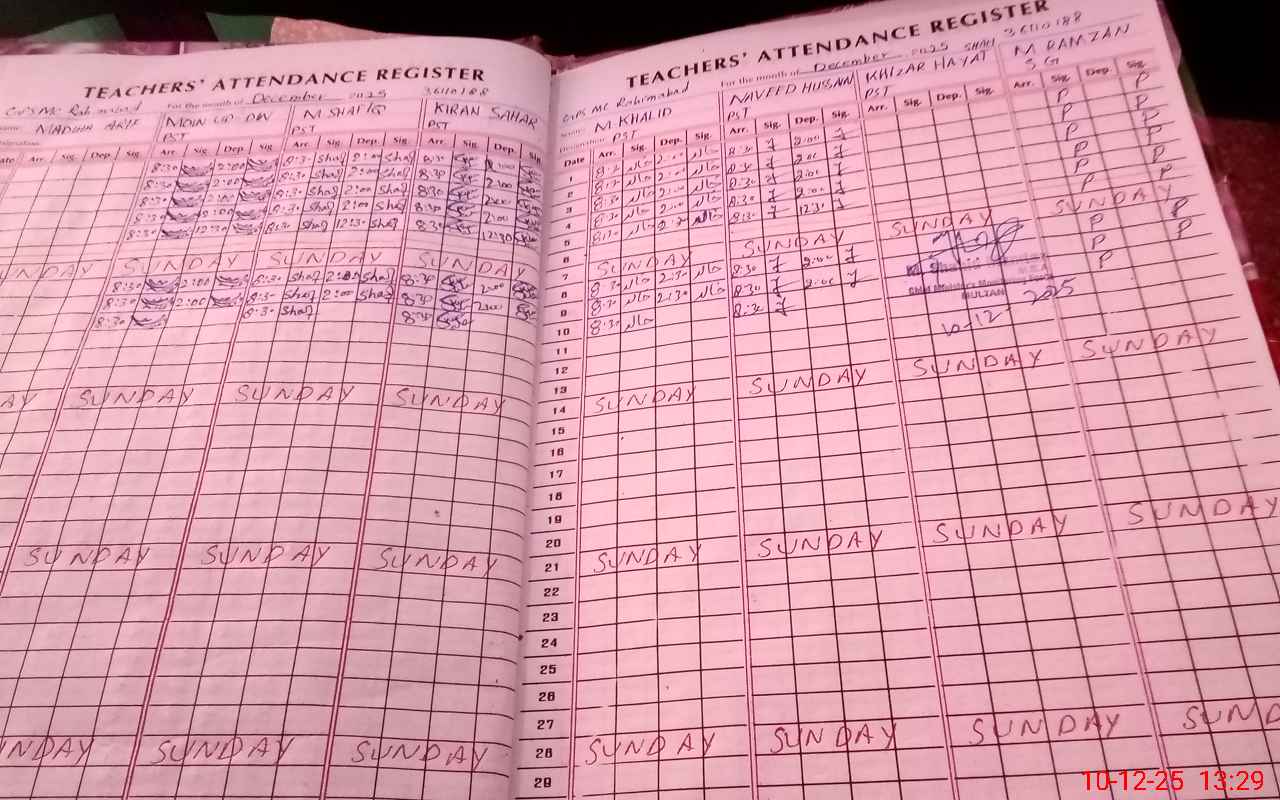 TEACHERS' ATTENDANCE REGISTER
GPS MC Rahimabad For the month of December 2025 36110188
MOIN UD DIN M SHAFIQ KIRAN SAHAR
PST PST PST
Date Arr. Sig. Dep. Sig. Arr. Sig. Dep. Sig. Arr. Sig. Dep. Sig. Arr. Sig. Dep. Sig.
8:30 2:00 8:30 Shaf 2:00 Shaf 8:30 2:00
8:30 2:00 8:30 Shaf 2:00 Shaf 8:30 2:00
8:30 2:00 8:30 Shaf 2:00 Shaf 8:30 2:00
8:30 2:00 8:30 Shaf 2:00 Shaf 8:30 2:00
8:30 12:30 8:30 Shaf 12:30 Shaf 8:30 12:30
SUNDAY SUNDAY SUNDAY SUNDAY
8:30 2:00 8:30 Shaf 2:00 Shaf 8:30 2:00
8:30 2:00 8:30 Shaf 2:00 Shaf 8:30 2:00
8:30 8:30 Shaf 8:30
SUNDAY SUNDAY SUNDAY
SUNDAY SUNDAY SUNDAY
SUNDAY SUNDAY SUNDAY
TEACHERS' ATTENDANCE REGISTER
GPS MC Rahimabad For the month of December 2025 36110188
Name M KHALID NAVEED HUSSAIN SHAH KHIZAR HAYAT M RAMZAN
Designation PST PST PST S, G
Date Arr. Sig. Dep. Sig. Arr. Sig. Dep. Sig. Arr. Sig. Dep. Sig. Arr. Sig. Dep. Sig.
1 8:30 خالد 2:00 خالد 8:30 2:00 P P
2 8:30 خالد 2:00 خالد 8:30 2:00 P P
3 8:30 خالد 2:00 خالد 8:30 2:00 P P
4 8:30 خالد 2:00 خالد 8:30 2:00 P P
5 8:30 خالد خالد 8:30 12:30 P P
6
7 SUNDAY SUNDAY SUNDAY SUNDAY
8 8:30 خالد 2:30 خالد 8:30 2:00 P P
9 8:30 خالد 2:30 خالد 8:30 2:00 P P
10 8:30 خالد 8:30 P
MULTAN
10-12 2025
11
12
13
14 SUNDAY SUNDAY SUNDAY SUNDAY
15
16
17
18
19
20
21 SUNDAY SUNDAY SUNDAY SUNDAY
22
23
24
25
26
27
28 SUNDAY SUNDAY SUNDAY
29
10-12-25 13:29